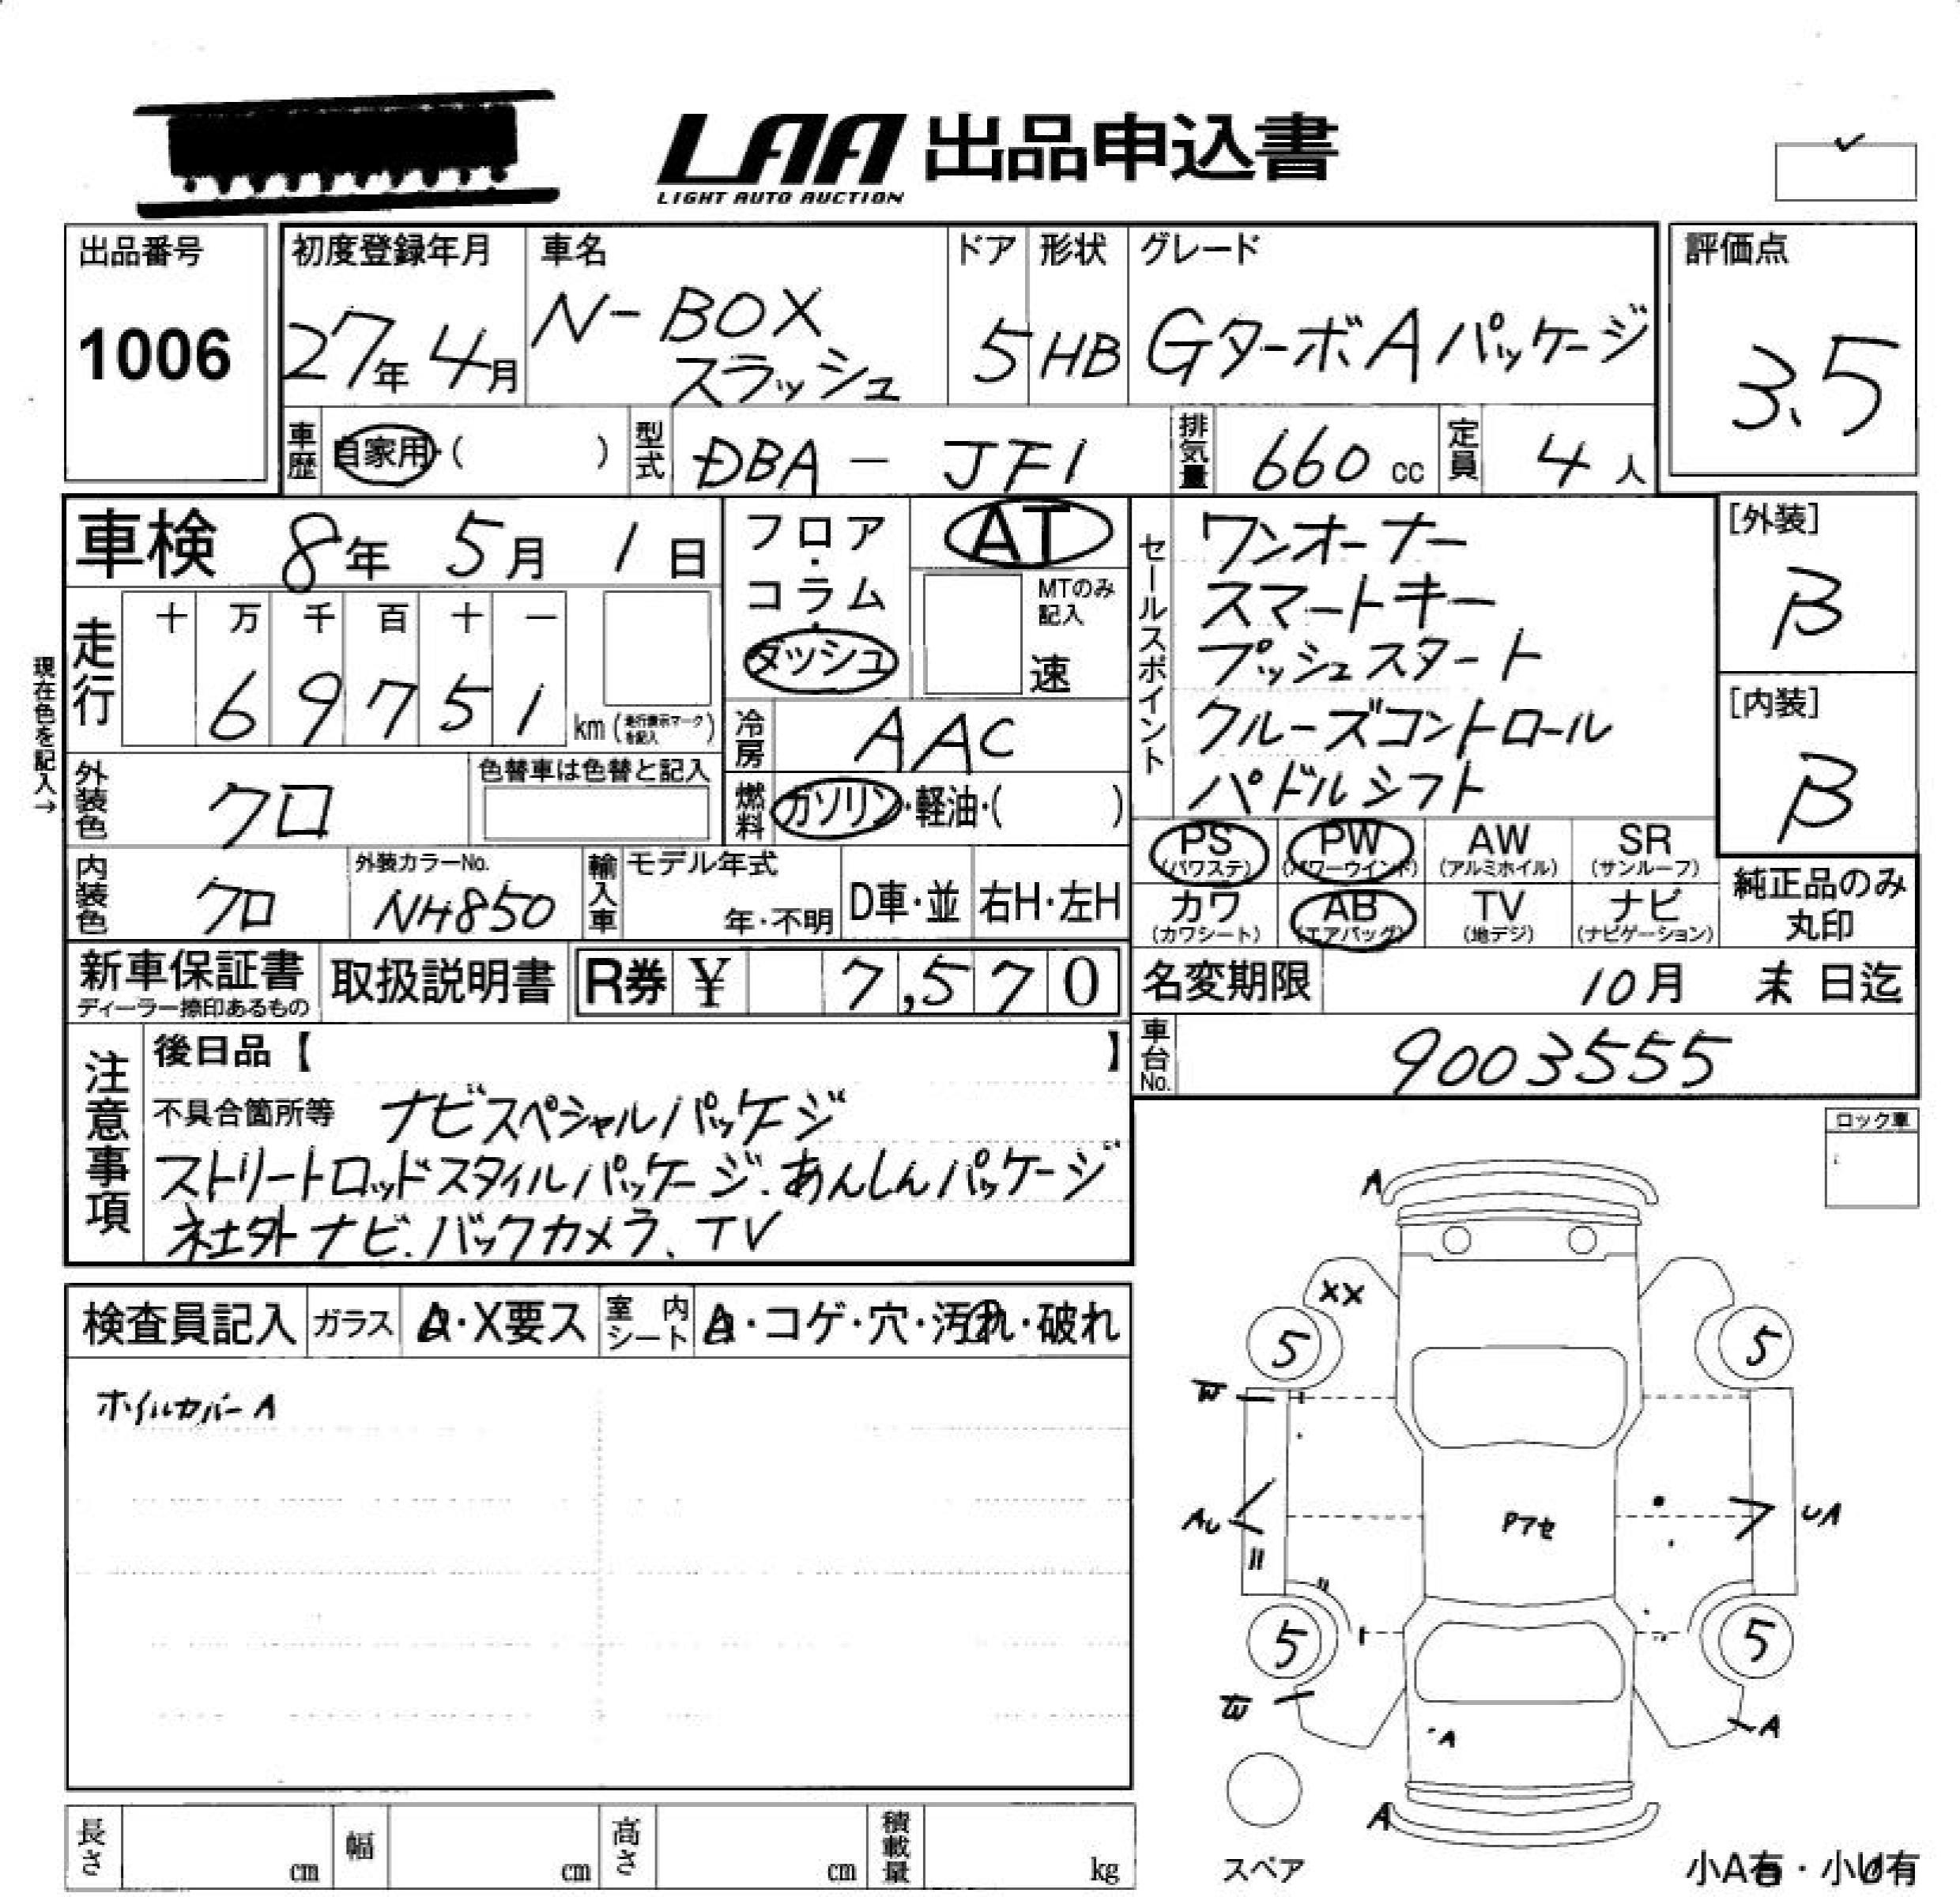 LAA 出品申込書
LIGHT AUTO AUCTION
出品番号
1006
初度登録年月
27年 4月
車名
N-BOX
スラッシュ
ドア
5
形状
HB
グレード
GターボAパッケージ
評価点
3.5
車歴 自家用・( )
型式 DBA - JF1
排気量 660 cc
定員 4 人
車検 8年 5月 1日
現在色を記入→
走行
十 万 千 百 十 一
6 9 7 5 1 km (走行表示マークを記入)
外装色 クロ
色替車は色替と記入
内装色 クロ
外装カラーNo.
NH850
輸入車
モデル年式
年・不明
D車・並
右H・左H
フロア・コラム・ダッシュ
AT
MTのみ記入
速
冷房 AAC
燃料 ガソリン・軽油・( )
セールスポイント
ワンオーナー
スマートキー
プッシュスタート
クルーズコントロール
パドルシフト
[外装]
B
[内装]
B
PS (パワステ) PW (パワーウインド) AW (アルミホイル) SR (サンルーフ)
カワ (カワシート) AB (エアバッグ) TV (地デジ) ナビ (ナビゲーション)
純正品のみ
丸印
新車保証書
ディーラー捺印あるもの
取扱説明書
R券 ¥ 7,570
名変期限 10月 末 日迄
車台No. 9003555
注意事項
後日品【 】
不具合箇所等 ナビスペシャルパッケージ
ストリートロッドスタイルパッケージ.あんしんパッケージ
社外ナビ.バックカメラ、TV
検査員記入 ガラス A・X要ス 室内シート A・コゲ・穴・汚れ・破れ
ホイルカバーA
ロック車
A
XX
5 5
W
Pアセ
A
UA
5 5
W
A
A
A
スペア
小A有・小U有
長さ cm 幅 cm 高さ cm 積載量 kg